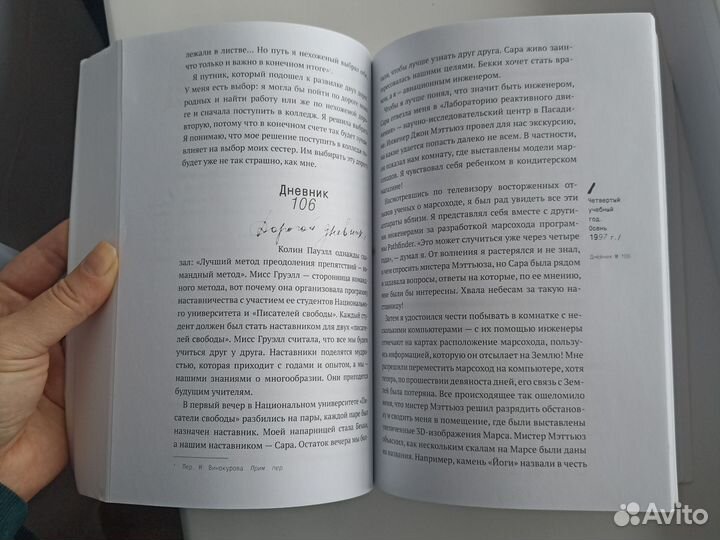 лежали в листве... Но путь я нехоженый выбрал себе,
что только и важно в конечном итоге¹.
Я путник, который подошел к развилку двух дорог.
У меня есть выбор: я могла бы пойти по дороге моих
родных и найти работу или же по нехоженой дороге
и сначала поступить в колледж. Я решила выбрать
вторую, потому что в конечном счете так будет лучше.
Я понимаю, что мое решение поступить в колледж по-
влияет на выбор моих сестер. Им выбирать эту дорогу
будет уже не так страшно, как мне.
Дневник
106
Дорогой дневник,
Колин Пауэлл однажды ска-
зал: «Лучший метод преодоления препятствий — ко-
мандный метод». Мисс Груэлл — сторонница команд-
ного метода, вот почему она организовала программу
наставничества с участием ее студентов Националь-
ного университета и «Писателей свободы». Каждый сту-
дент должен был стать наставником для двух «писате-
лей свободы». Мисс Груэлл считала, что все мы будем
учиться друг у друга. Наставники поделятся мудро-
стью, которая приходит с годами и опытом, а мы —
нашими знаниями о многообразии. Они пригодятся
будущим учителям.
В первый вечер в Национальном университете «Пи-
сатели свободы» разбились на пары, каждой паре был
назначен наставник. Моей напарницей стала Бекки,
а нашим наставником — Сара. Остаток вечера мы бол-
¹ Пер. И. Винокурова. Прим. пер.
тали, чтобы лучше узнать друг друга. Сара живо заин-
тересовалась нашими целями. Бекки хочет стать вра-
чом, а я — авиационным инженером.
Чтобы я лучше понял, что значит быть инженером,
Сара отвезла меня в «Лабораторию реактивного дви-
жения» — научно-исследовательский центр в Пасади-
не. Инженер Джон Мэттьюз провел для нас экскурсию,
на какие удается попасть далеко не всем. В частности,
он показал нам комнату, где выставлены модели мар-
соходов. Я чувствовал себя ребенком в кондитерском
магазине!
Насмотревшись по телевизору восторженных от-
зывов ученых о марсоходе, я был рад увидеть все эти
аппараты вблизи. Я представлял себя вместе с други-
ми инженерами за разработкой марсохода програм-
мы Pathfinder. «Это может случиться уже через четыре
года», — думал я. От волнения я растерялся и не знал,
о чем спросить мистера Мэттьюза, но Сара была рядом
и задавала вопросы, ответы на которые, по ее мнению,
мне были бы интересны. Хвала небесам за такую на-
ставницу!
Затем я удостоился чести побывать в комнатке с не-
сколькими компьютерами — с их помощью инженеры
отмечают на картах расположение марсохода, пользу-
ясь информацией, которую он отсылает на Землю! Мне
разрешили переместить марсоход на компьютере, хотя
по прошествии девяноста дней, его связь с Зем-
лей была потеряна. Все происходящее так ошеломило
меня, что мистер Мэттьюз решил разрядить обстанов-
ку и сводить меня в помещение, где были выставлены
увеличенные 3D-изображения Марса. Мистер Мэттьюз
объяснил, как нескольким скалам на Марсе были да-
ны названия. Например, камень «Йоги» назвали в честь
Четвертый
учебный
год.
Осень
1997 г./
Дневник № 106
Avito